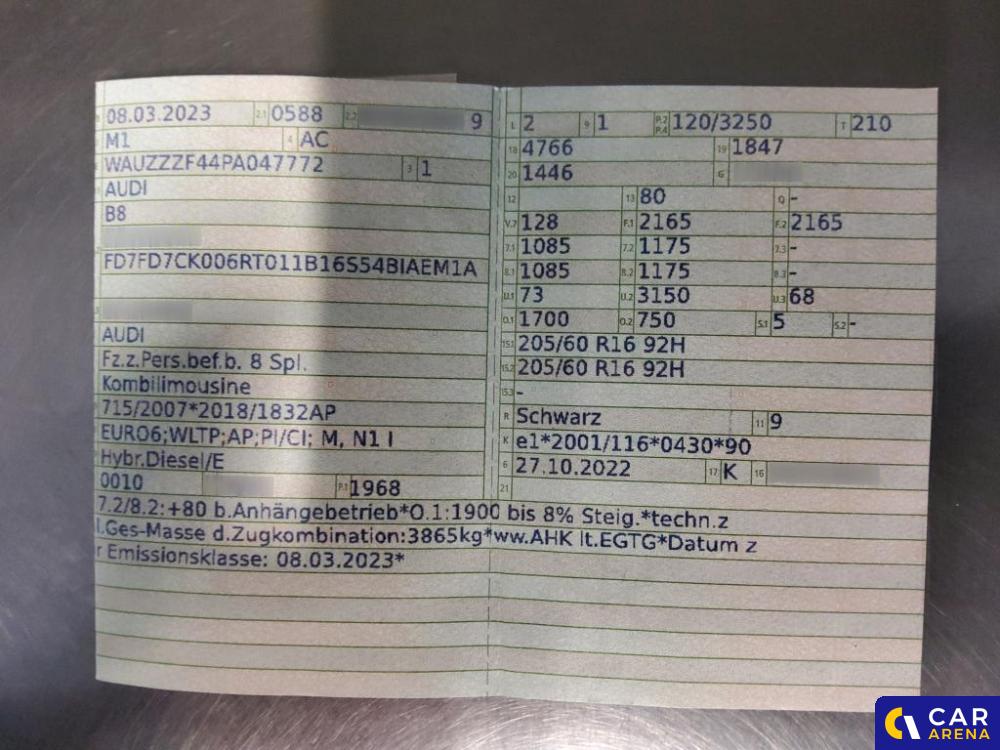 08.03.2023 2.1 0588 2.2 9
M1 4 AC
WAUZZZF44PA047772 3 1
AUDI
B8
FD7FD7CK006RT011B16S54BIAEM1A
AUDI
Fz.z.Pers.bef.b. 8 Spl.
Kombilimousine
715/2007*2018/1832AP
EURO6;WLTP;AP;PI/CI; M, N1 I
Hybr.Diesel/E
0010 P.1 1968
L 2 9 1 P.2 P.4 120/3250 T 210
18 4766 19 1847
20 1446 G
12 13 80 Q -
V.7 128 F.1 2165 F.2 2165
7.1 1085 7.2 1175 7.3 -
8.1 1085 8.2 1175 8.3 -
U.1 73 U.2 3150 U.3 68
O.1 1700 O.2 750 S.1 5 S.2 -
15.1 205/60 R16 92H
15.2 205/60 R16 92H
15.3 -
R Schwarz 11 9
K e1*2001/116*0430*90
6 27.10.2022 17 K 16
21
7.2/8.2:+80 b.Anhängebetrieb*O.1:1900 bis 8% Steig.*techn.z
l.Ges-Masse d.Zugkombination:3865kg*ww.AHK lt.EGTG*Datum z
r Emissionsklasse: 08.03.2023*
CAR
ARENA